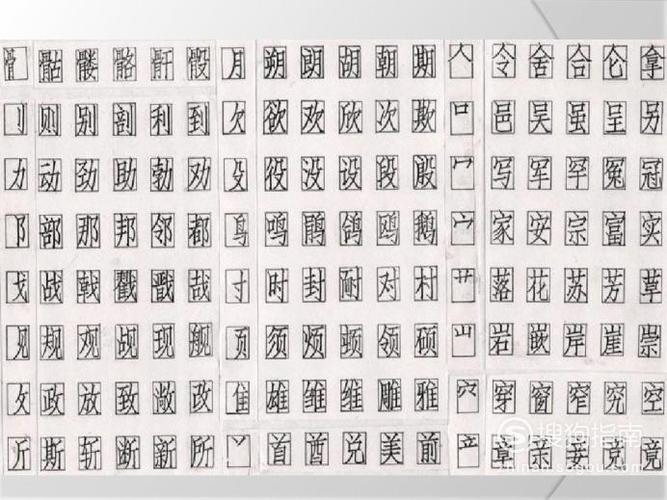 骨 骷 髅 骼 骭 骰 月 朔 朗 胡 朝 期 人 令 舍 合 仑 拿
刂 则 别 剖 利 到 欠 欲 欢 欣 次 欺 口 邑 吴 虽 呈 另
力 动 劲 助 勃 劝 殳 役 没 设 段 殷 冖 写 军 罕 冤 冠
阝 部 那 邦 邻 都 鸟 鸣 鹃 鸽 鸥 鹅 宀 家 安 宗 富 实
戈 战 戟 戳 戬 哉 寸 时 封 耐 对 村 艹 落 花 苏 芳 草
见 规 观 觇 现 舰 页 须 烦 顿 领 硕 山 岩 嵌 岸 崖 崇
攵 政 放 致 敞 改 隹 雄 维 维 雕 雅 穴 穿 窗 窄 究 空
斤 斯 斩 断 新 所 丷 首 酋 兑 美 前 立 章 亲 妾 竞 竟
搜狗指南
zhinan.sogou.com